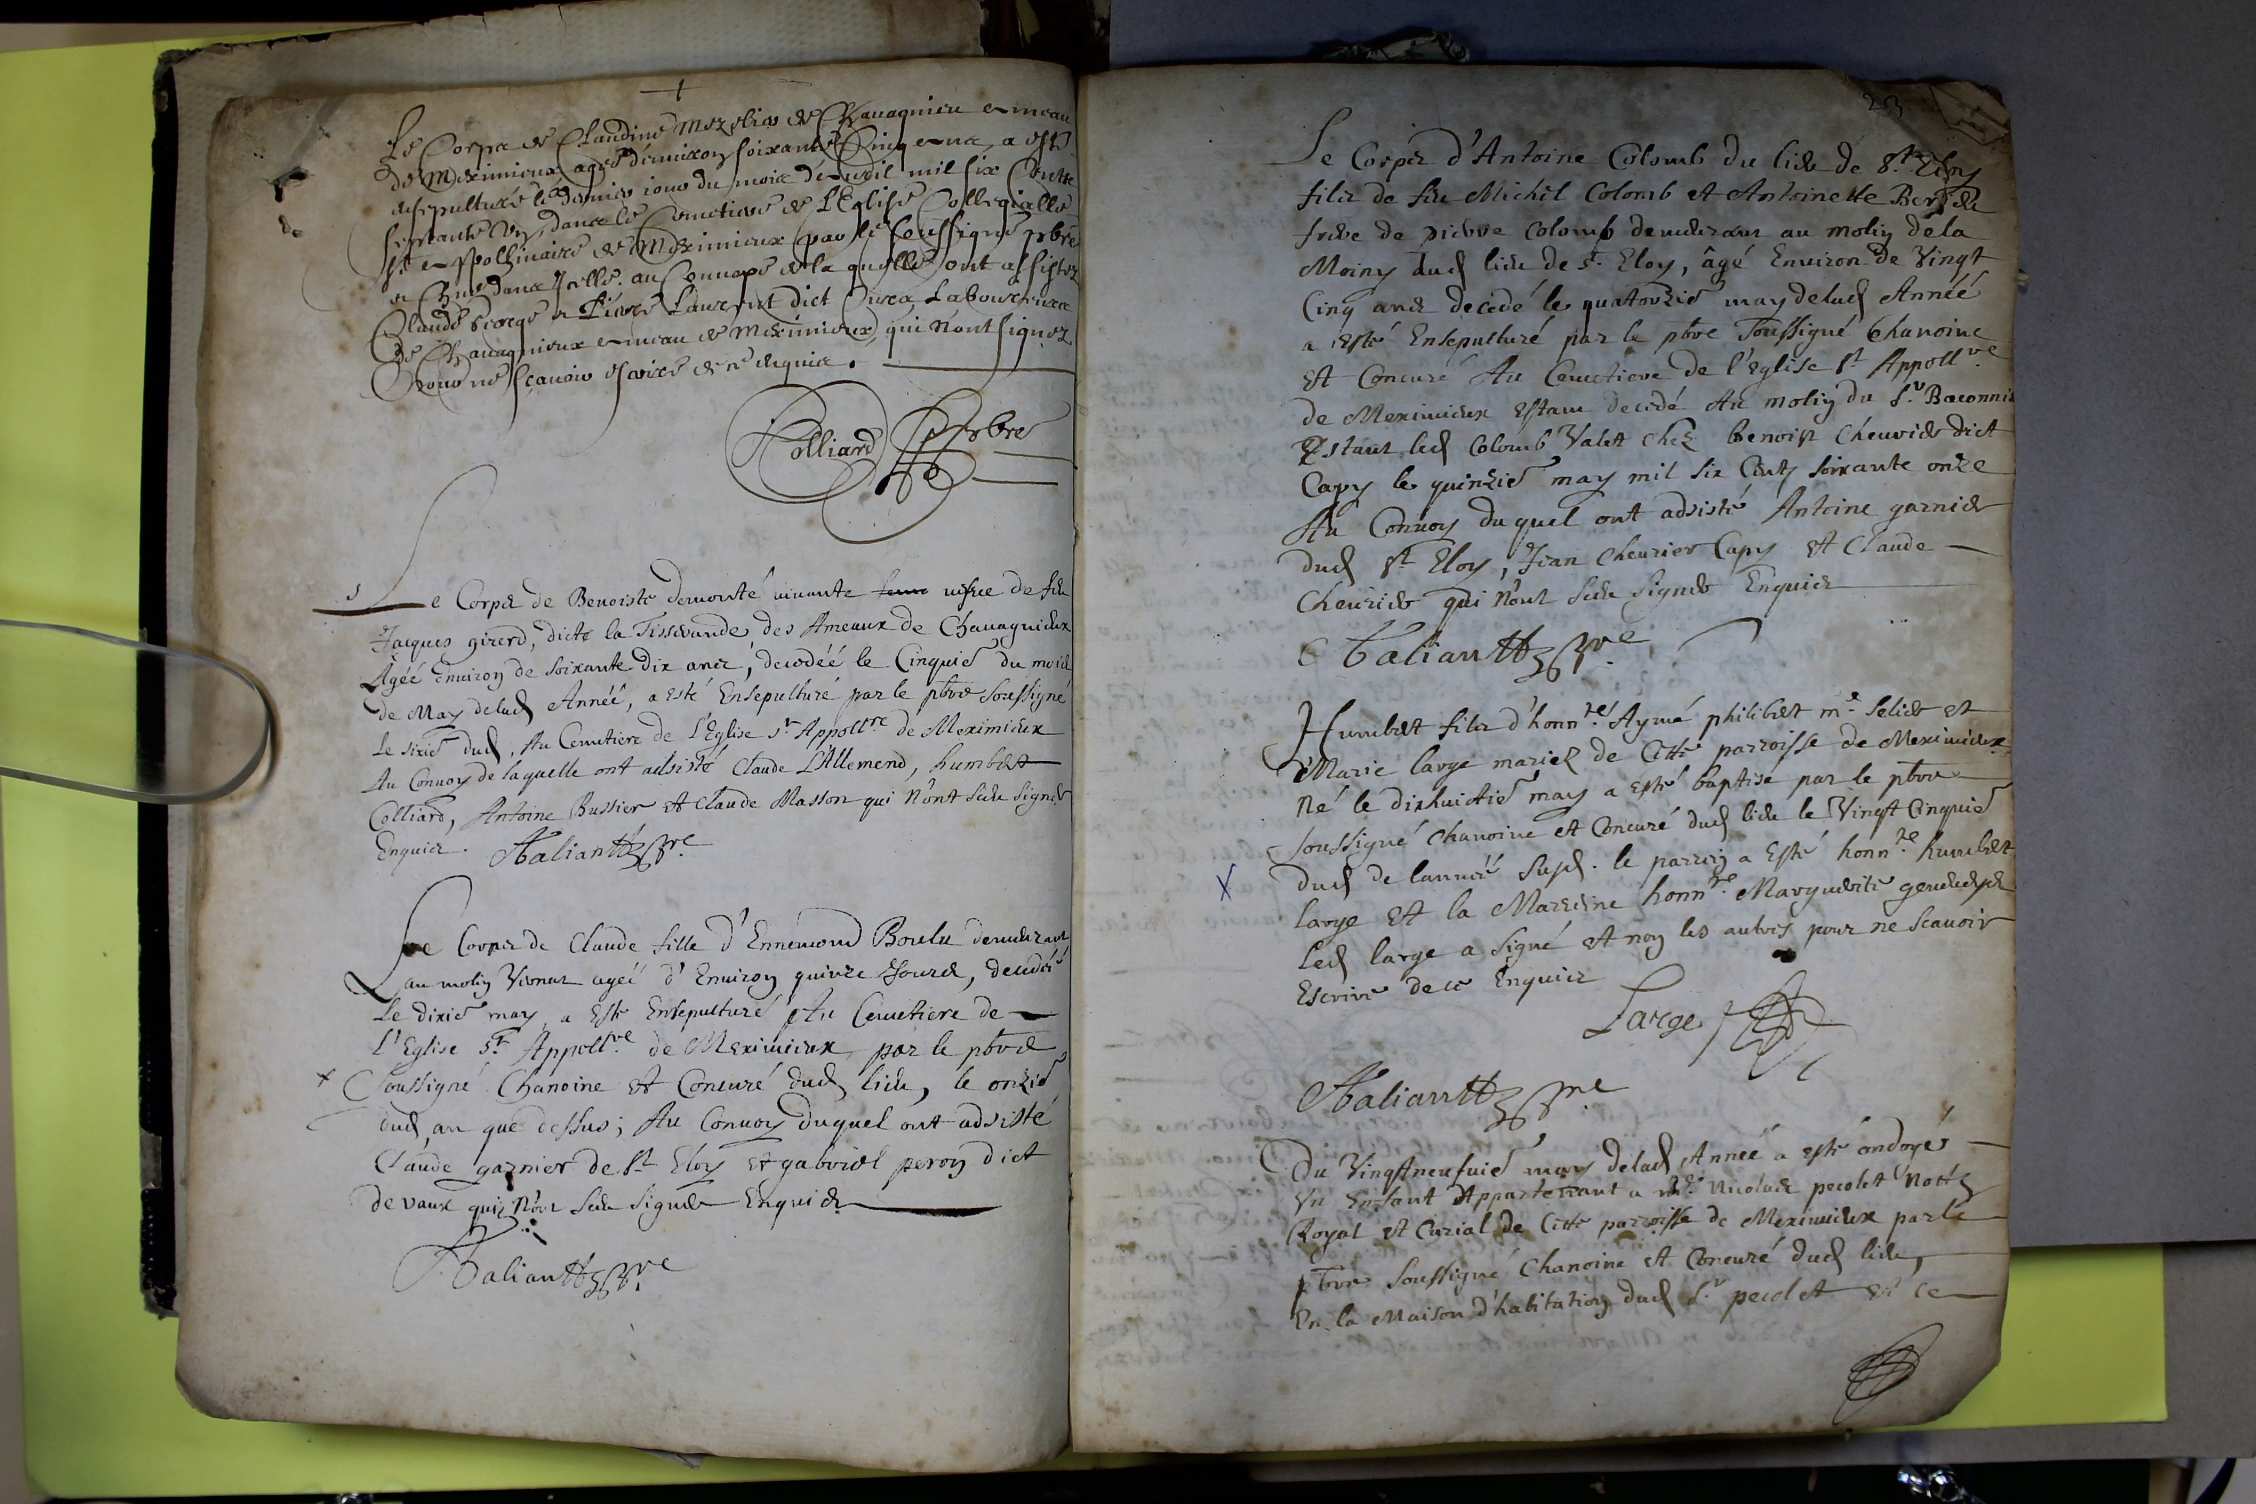 Le Corps de Claudine de Chavagnieu emeau
de Meximieux, agée denviron soixante Cinq ans, a esté
ensepulturé le dernier iour du mois davril mil six Cents
septante Un, dans le Cemetiere de L'Eglise Collegialle
St Appollinaire de Meximieux par le soussigné pbre
au Convoys de laquelle ont assistez
Claude George et Pierre Laurent dict Laboureurs
de Chavagnieux emeau de Meximieux, qui n'ont signez
pour ne sçavoir escrire de ce enquis.
Colliard pbre
Le Corps de Benoiste demonté vivante vefve de feu
Jacques girerd, dicte la Tisserande des Ameaux de Chavagnieux
Agéé Environ de Soixante dix ans, decedéé le Cinquie du mois
de May delad Annéé, a esté Ensepulturé par le pbre soussigné
Le sixie dud, Au Cemetiere de L'Eglise St Appollre de Meximieux
Au Convoy de laquelle ont adsisté Claude L'Allemend, humbert
Colliard, Antoine Bussier et Claude Masson qui N'ont sceu signer
Enquis. pbre
Le Corps de Claude fille d'Ennemond Boulu demeurant
au molin Vernat agéé d'Environ quinze Jours, decedéé
Le dixie may, a Esté Ensepulturé Au Cemetiere de
L'Eglise St Appollre de Meximieux par le pbre
Soussigné Chanoine et Concuré dud lieu, le onzie
dud, an que dessus; Au Convoy duquel ont adsisté
Claude garnier de St Eloy et gabriel peron dict
devaux qui N'ont Sceu Signer Enquis
pbre
23
Le Corps d'Antoine Colomb du lieu de St Eloy
filz de feu Michel Colomb et Antoinette
frere de pierre Colomb demeurant au molin de la
Moiny dud lieu de St Eloy, âgé Environ de Vingt
Cinq ans decedé le quatorzie may delad Annéé
a Esté Ensepulturé par le pbre Soussigné Chanoine
et Concuré Au Cemetiere de l'Eglise St Appollre
de Meximieux estant decedé Au molin du Sr Baconnis
Estant led Colomb Valet chez benoist Chevrier dict
Capy le quinzie may mil six Cents soixante onze
Au Convoy duquel ont adsisté Antoine garnier
dud St Eloy, Jean Chevrier Capy et Claude
Chevrier qui N'ont Sceu signer Enquis
pbre
Humbert filz d'honnte Aymé philibert me Selier et
Marie large mariez de Cette parroisse de Meximieux
Né le dixhuictie may a esté baptisé par le pbre
soussigné Chanoine et Concuré dud lieu le Vingt Cinquie
dud de lannéé Susd. le parrin a Esté honnte humbert
large et la Marreine honnte Marguerite
led large a signé et non les autres pour ne Scavoir
Escrire de ce Enquis
Large
pbre
Du Vingtneufvie may delad Annéé a esté ondoyé
Un Enfant Appartenant a me Nicolas pecolet Notte
Royal et Curial de Cette parroisse de Meximieux par le
pbre Soussigné Chanoine et Concuré dud lieu,
En la Maison d'habitation dud Sr pecolet et ce